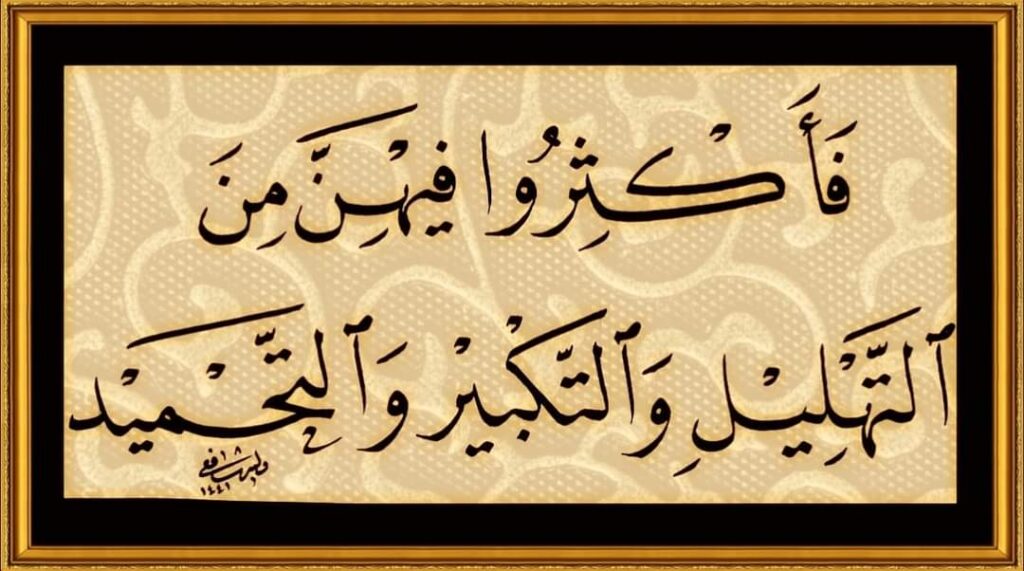 فَأَكْثِرُوا فِيْهِنَّ مِنَ
ٱلتَّهْلِيْلِ وَٱلتَّكْبِيْرِ وَٱلتَّحْمِيْد
١٤٤١